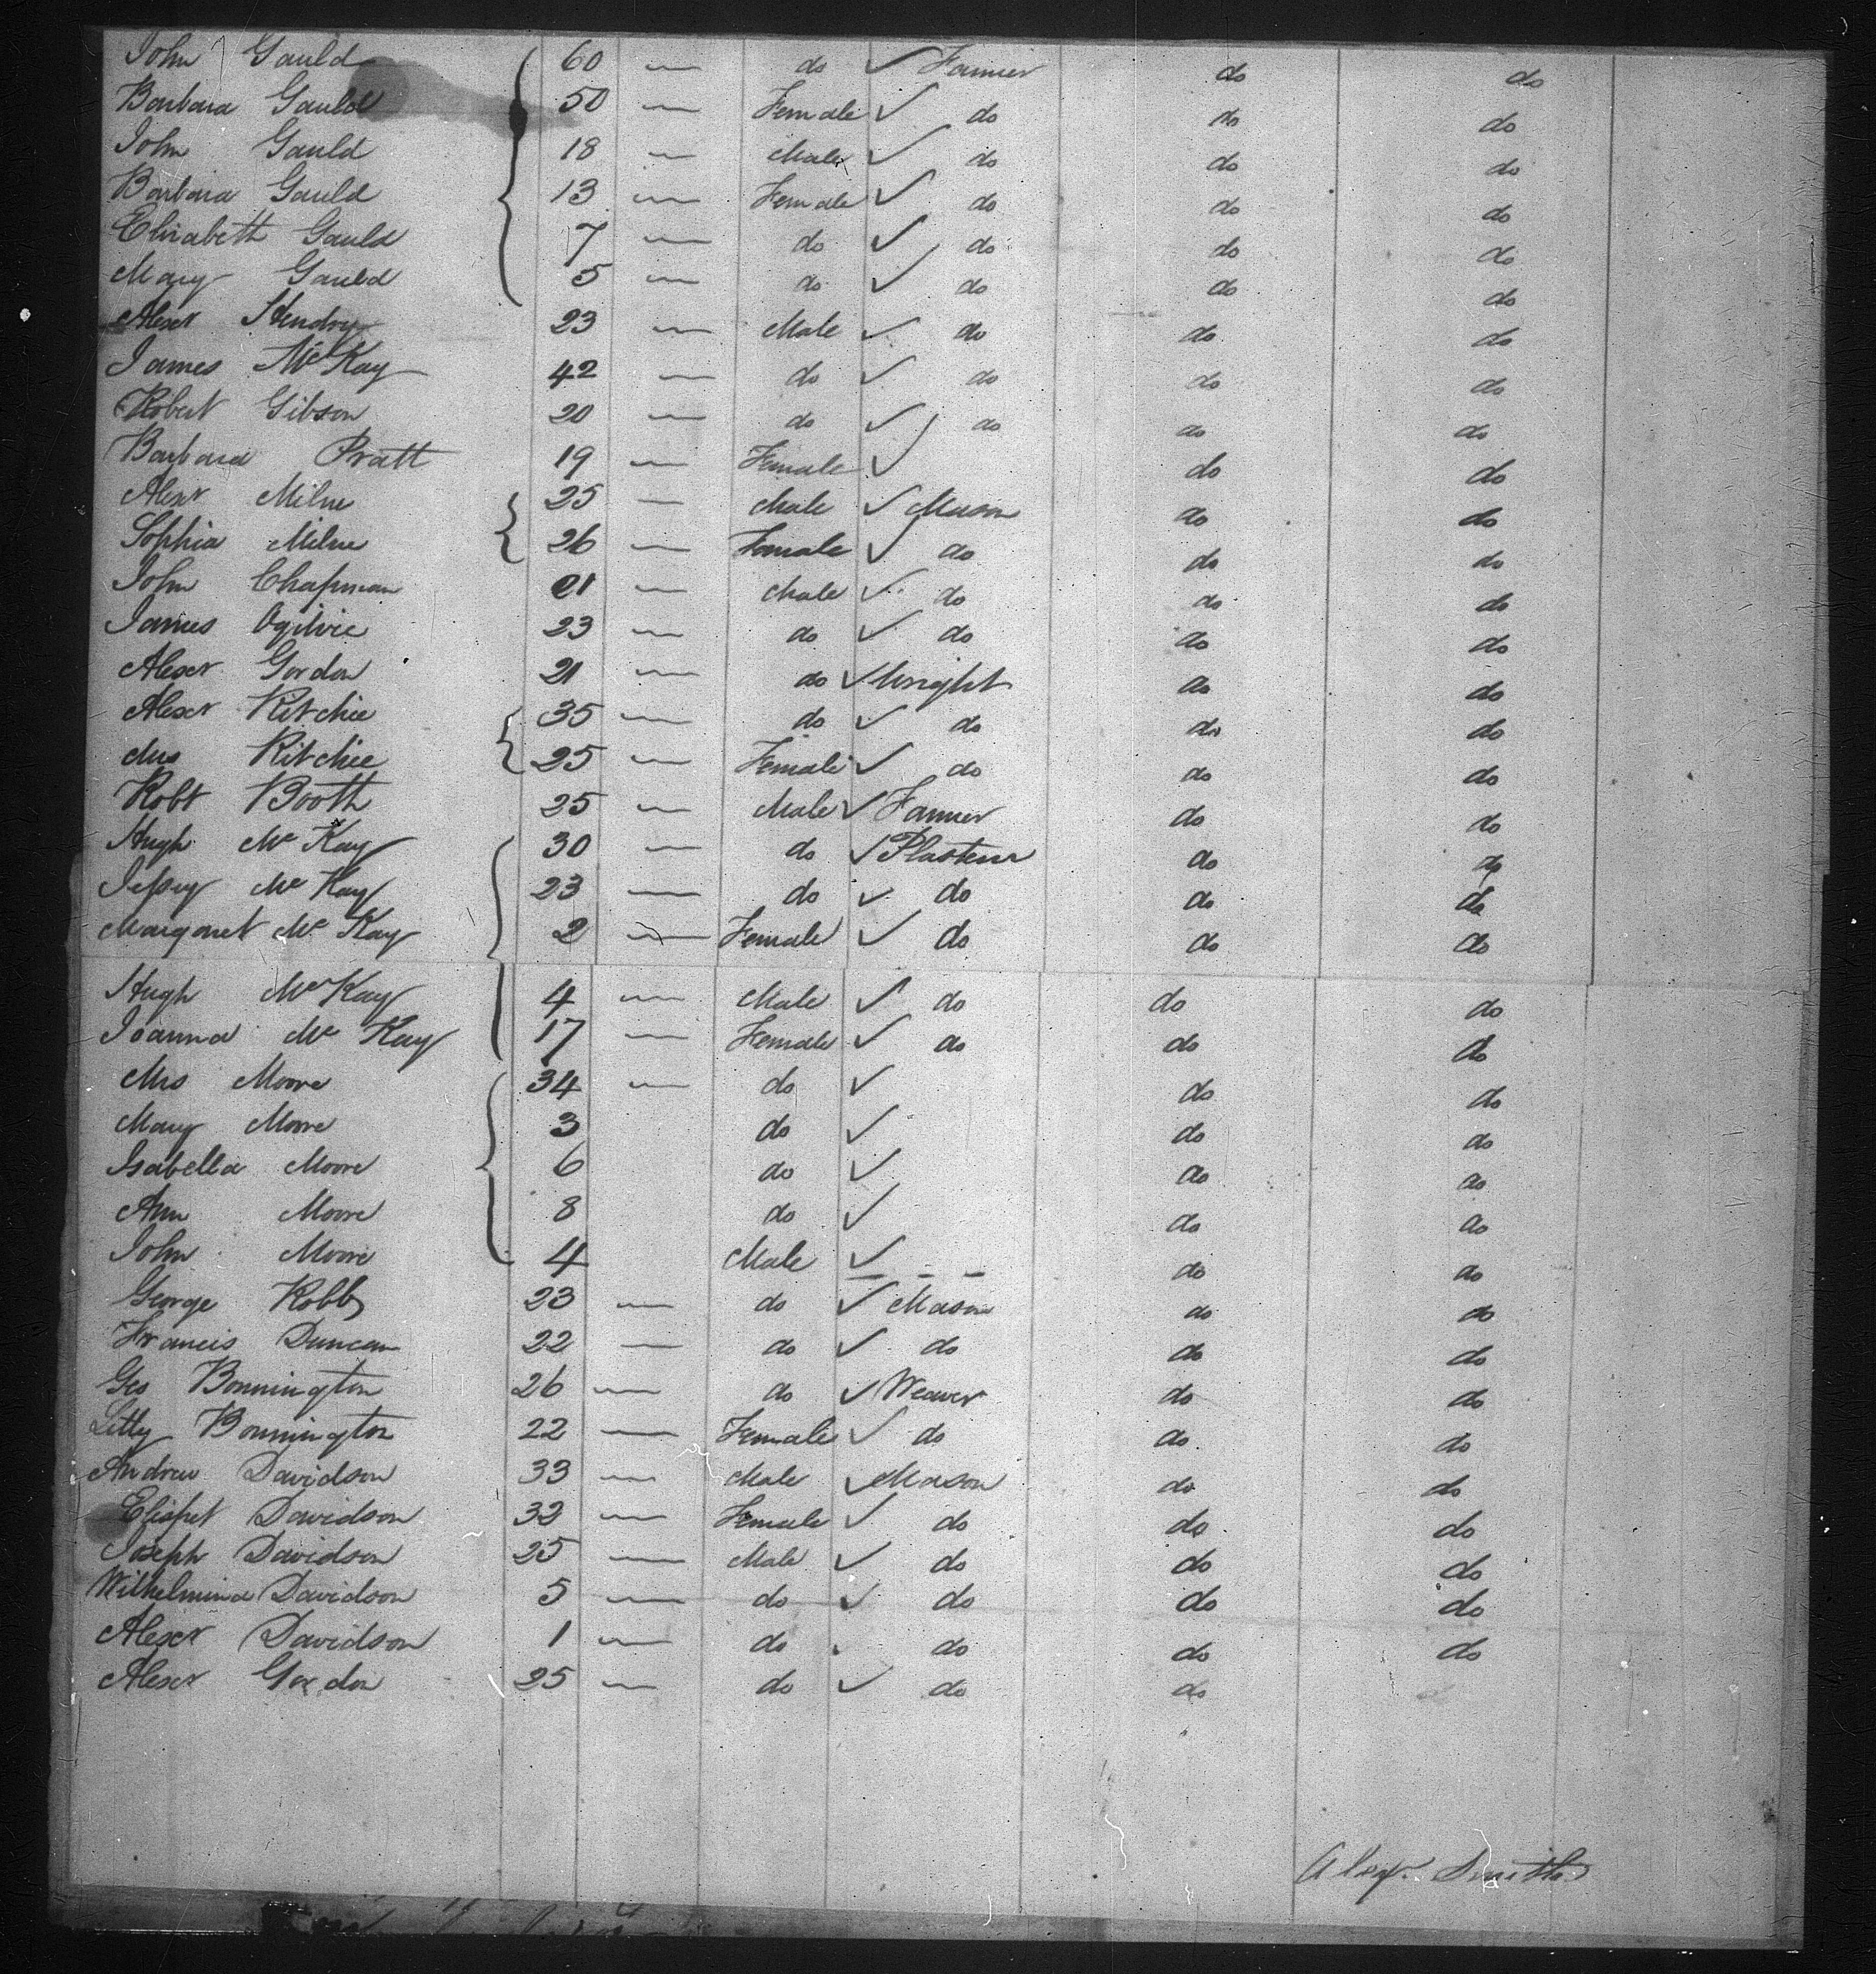 John Gauld 60 — do ✓ Farmer do do
Barbara Gauld 50 — Female ✓ do do do
John Gauld 18 — Male ✓ do do do
Barbara Gauld 13 — Female ✓ do do do
Elizabeth Gauld 7 — do ✓ do do do
Mary Gauld 5 — do ✓ do do do
Alexr Hendry 23 — Male ✓ do do do
James McKay 42 — do ✓ do do do
Robert Gibson 20 — do ✓ do do do
Barbara Pratt 19 — Female ✓ do do
Alexr Milne 25 — Male ✓ Mason do do
Sophia Milne 26 — Female ✓ do do do
John Chapman 21 — Male ✓ do do do
James Ogilvie 23 — do ✓ do do do
Alexr Gordon 21 — do ✓ Wright do do
Alexr Ritchie 35 — do ✓ do do do
Mrs Ritchie 25 — Female ✓ do do do
Robt Booth 25 — Male ✓ Farmer do do
Hugh McKay 30 — do ✓ Plasterer do do
Jessy McKay 23 — do ✓ do do do
Margaret McKay 2 — Female ✓ do do do
Hugh McKay 4 — Male ✓ do do do
Joanna McKay 17 — Female ✓ do do do
Mrs Moore 34 — do ✓ do do
Mary Moore 3 do ✓ do do
Isabella Moore 6 do ✓ do do
Ann Moore 8 do ✓ do do
John Moore 4 Male ✓ - - - do do
George Robb 23 — do ✓ Mason do do
Francis Duncan 22 — do ✓ do do do
Geo Bonnington 26 — do ✓ Weaver do do
Letty Bonnington 22 — Female ✓ do do do
Andrew Davidson 33 — Male ✓ Mason do do
Elispet Davidson 32 — Female ✓ do do do
Joseph Davidson 25 — Male ✓ do do do
Wilhelmina Davidson 5 — do ✓ do do do
Alexr Davidson 1 — do do do do
Alexr Gordon 25 — do ✓ do do
Alexr. Smith